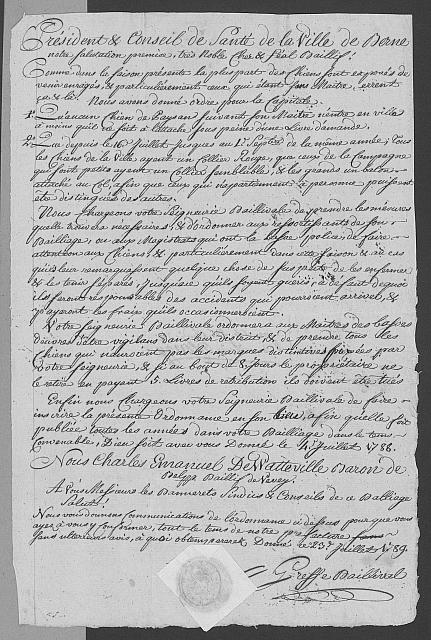 Président & Conseil de Santé de la Ville de Berne
notre Salutation premise, très Noble Cher & Féal Baillif!
Comme dans la saison présente la plus part des Chiens sont exposés de
venir enragés, & particulièrement ceux, qui étant sans Maitre, errent
çà & là. Nous avons donné ordre pour la Capitale.
1º Qu'aucun Chien de Paysans suivant son Maitre n'entre en ville
à moins qu'il ne soit à l'attache sous peine d'une Livre d'amande.
2º Que depuis le 16 Juillet jusques au 1r Septbre de la même année; Tous
les Chiens de la Ville ayent un Collier Rouge, que ceux de la Campagne
qui sont petits ayent un Collier semblable, & les grands un
attaché au Col, afin que ceux qui n'apartiennent à personne puissent
être distingués des autres.
Nous Chargeons votre Seigneurie Baillivale de prendre les mésures
quelle trouvera necessaires, & d'ordonner aux ressortissants de son
Bailliage, ou aux Magistrats qui ont la basse police, de faire
attention aux Chiens, & particulierement dans cette saison & au cas
quils leur remarquassent quelque chose de suspect de les enfermer
& les tenir separés, jusqu'à ce quils soyent guéris; à defaut de quoi
ils seront responsables des accidents qui pourroient arriver, &
payeront les fraix quils occasionneroient.
Votre Seigneurie Baillivale ordonnera aux Maitres des basses
œuvres d'être vigilans dans leur district, & de prendre tous les
Chiens qui n'auront pas les marques distinctives fixées par
votre Seigneurie, & si au bout de 8 jours le propriétaire ne
le retire en payant 3. Livres de retribution ils doivent être tués
Enfin nous Chargeons votre Seigneurie Baillivale de faire
inscrire la présente Ordonnance en son Livre, afin quelle soit
publiée toutes les années dans votre Bailliage dans le tems
Convenable; Dieu soit avec vous Donné le 4e Juillet 1788.
Nous Charles Emanuel De Watteville Baron de
Belpp Baillif de Vevey.
A Vous Messieurs les Bannerets Sindics & Conseils de ce Bailliage
Salut!
Nous vous donnons Communication de l'ordonnance ci dessus pour que vous
ayez à vous y Conformer, tout le tems de notre préfecture sans
sans ulterieur avis, à quoi obtempererez. Donné ce 23e Juillet 1789.
Greffe Baillival